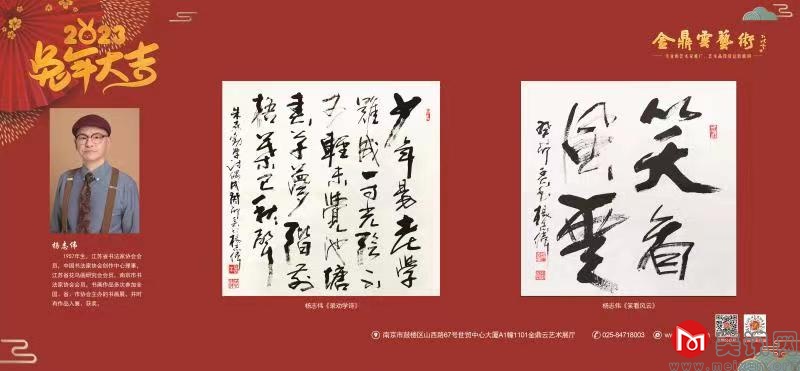 2023
兔年大吉
金鼎雲藝術
杨志伟
1957年生，江苏省书法家协会会
员，中国书法家协会创作中心理事，
江苏省花鸟画研究会会员，南京市书
法家协会会员。书画作品多次参加全
国、省、市协会主办的书画展，并时
有作品入展、获奖。
少年易老學
難成一寸光陰不
可輕未覺池塘
春草夢階前
梧葉已秋聲
杨志伟《录劝学诗》
笑看
風雲
杨志伟《笑看风云》
南京市鼓楼区山西路67号世贸中心大厦A1幢1101金鼎云艺术展厅
025-84718003